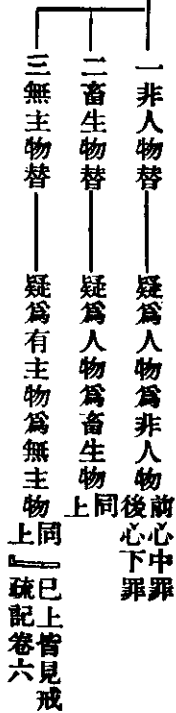 一非人物替——疑爲人物爲非人物前心中罪後心下罪
二畜生物替——疑爲人物爲畜生物同上
三無主物替——疑爲有主物爲無主物同上『已上皆見戒疏記卷六